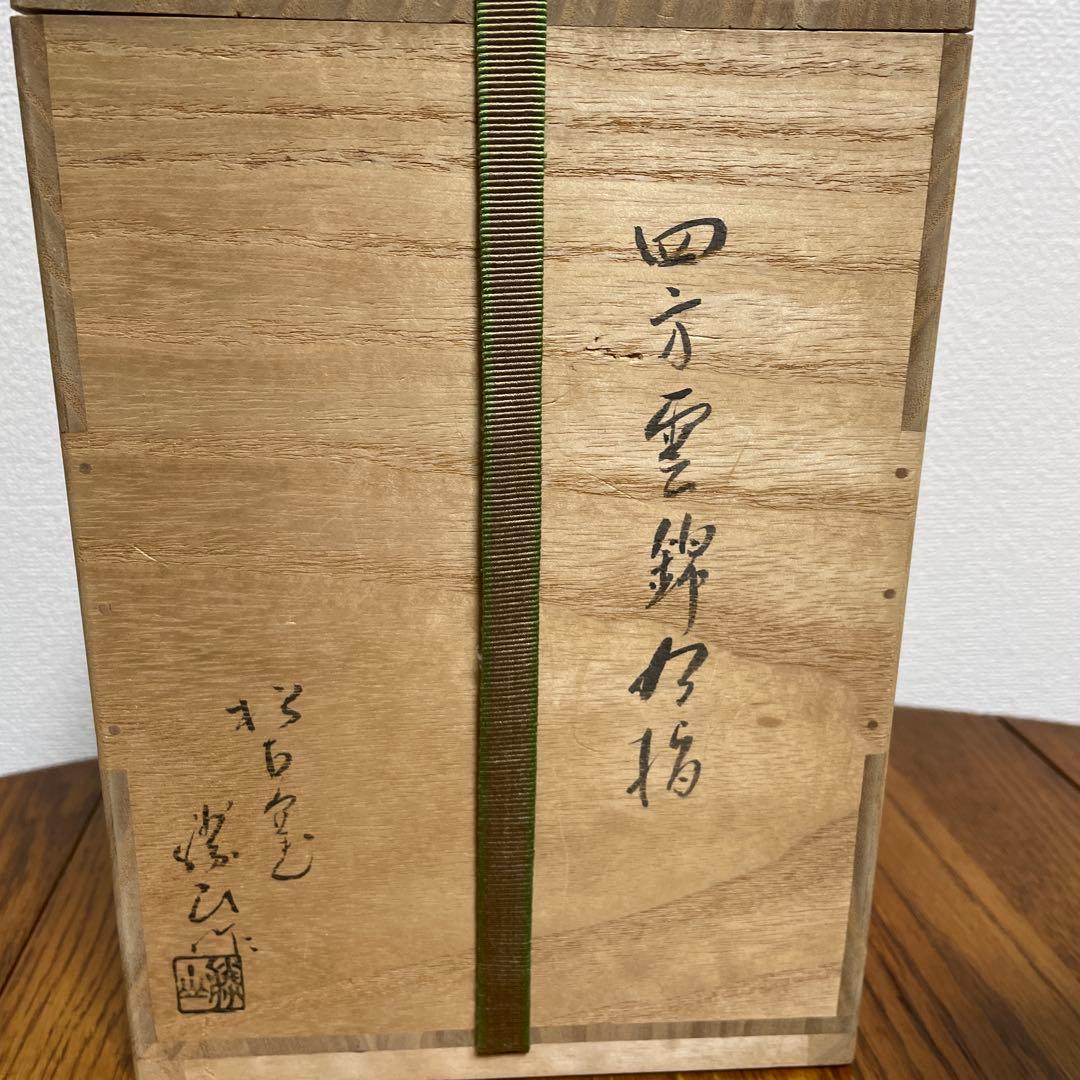 四方雲錦杓指
松古窯